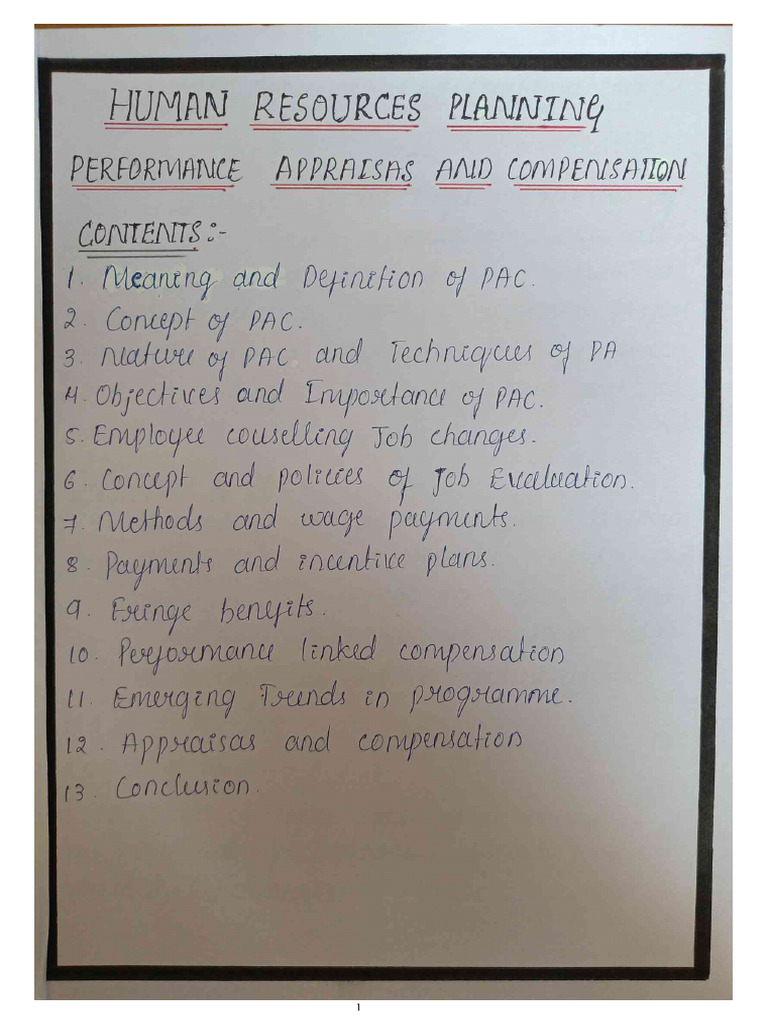 HUMAN RESOURCES PLANNING
PERFORMANCE APPRAISAS AND COMPENSATION
CONTENTS:-
1. Meaning and Definition of PAC.
2. Concept of PAC.
3. Nature of PAC and Techniques of PA
4. Objectives and Importance of PAC.
5. Employee couselling Job changes.
6. Concept and policies of Job Evaluation.
7. Methods and wage payments.
8. Payments and incentive plans.
9. Fringe benefits.
10. Performance linked compensation
11. Emerging Trends in programme.
12. Appraisas and compensation
13. Conclusion.
1